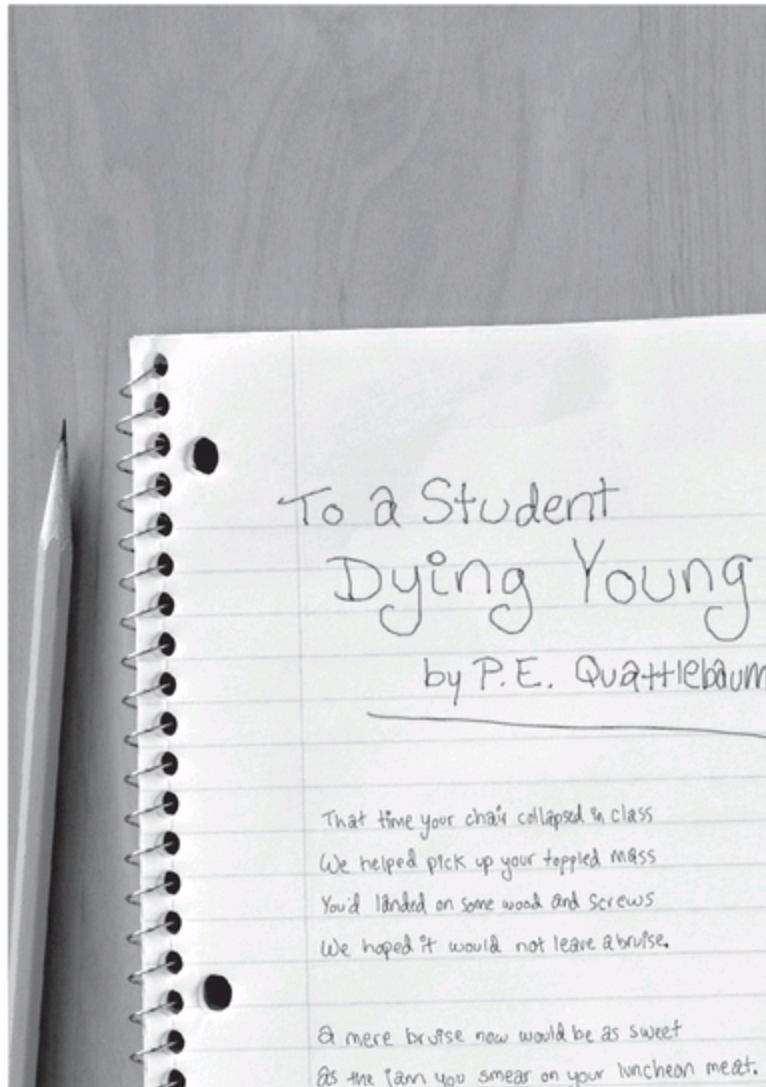 To a Student
Dying Young
by P.E. Quattlebaum
That time your chair collapsed in class
We helped pick up your toppled mass
You'd landed on some wood and screws
We hoped it would not leave a bruise.
a mere bruise now would be as sweet
as the jam you smear on your luncheon meat.